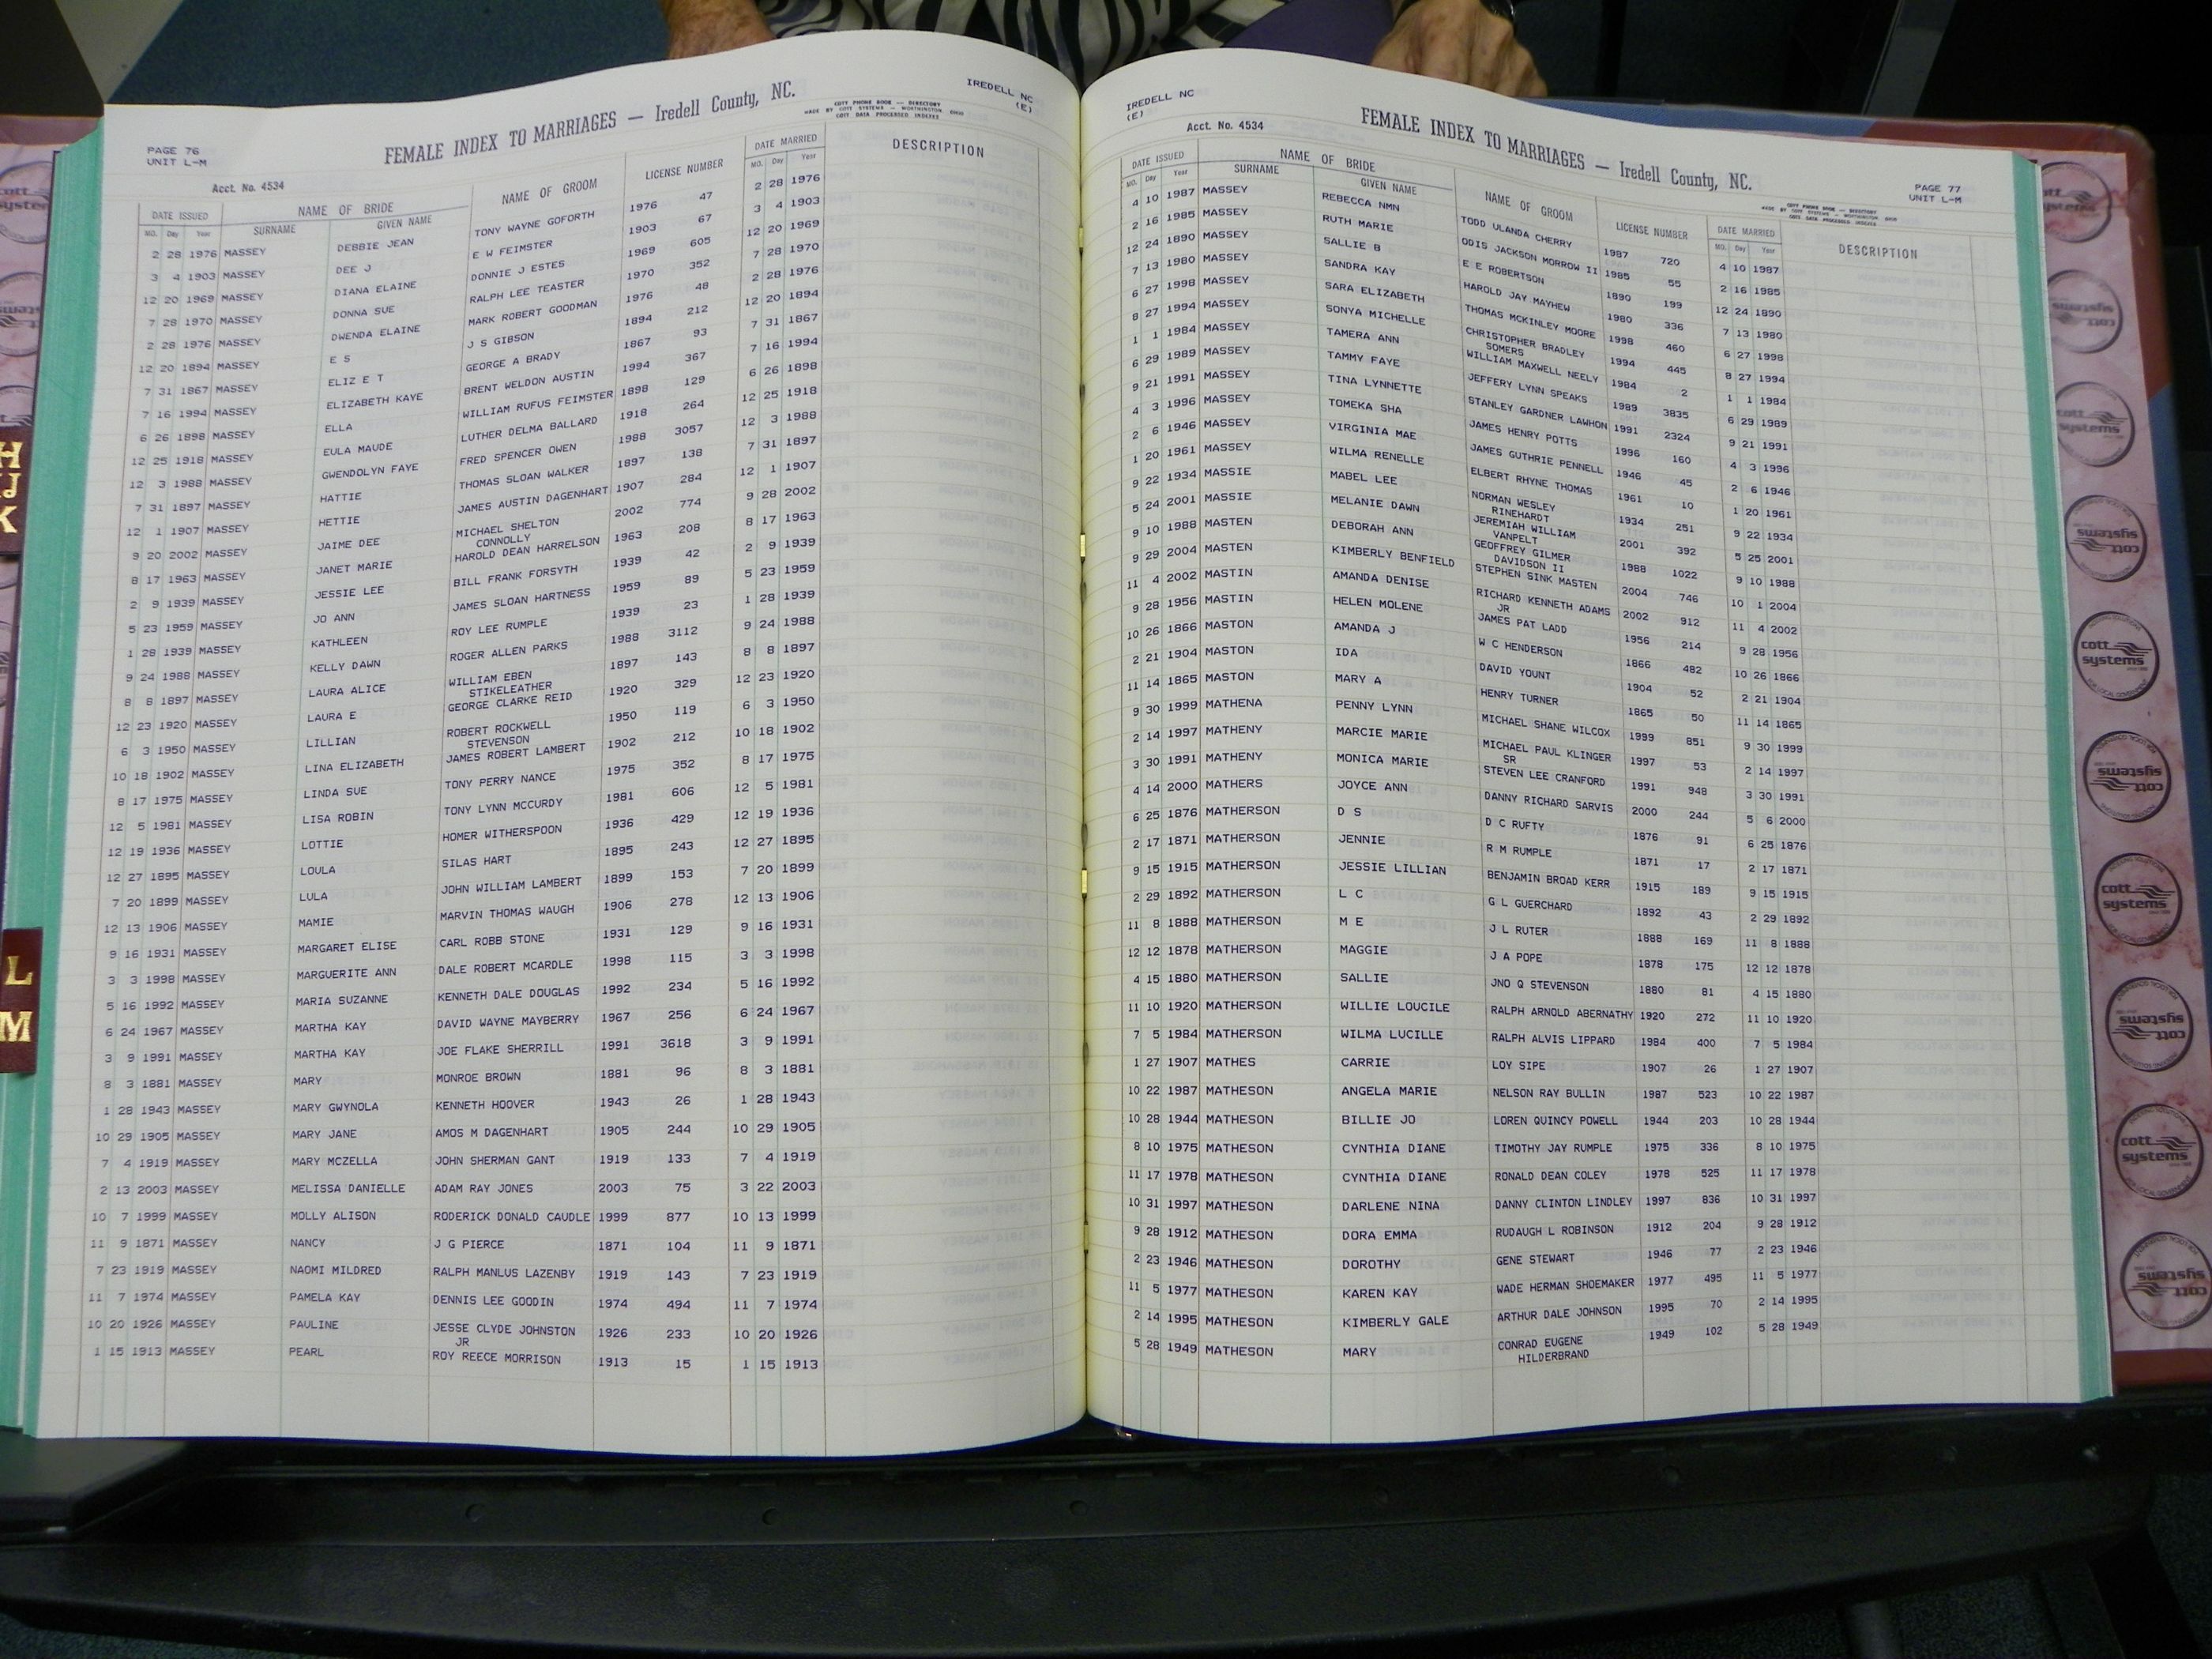 PAGE 76
UNIT L-M
FEMALE INDEX TO MARRIAGES — Iredell County, NC.
COTT PHONE BOOK — DIRECTORY
MADE BY COTT SYSTEMS — WORTHINGTON OHIO
COTT DATA PROCESSED INDEXES
IREDELL NC
(E)
Acct. No. 4534
DATE ISSUED NAME OF BRIDE NAME OF GROOM LICENSE NUMBER DATE MARRIED DESCRIPTION
MO. Day Year SURNAME GIVEN NAME MO. Day Year
2 28 1976 MASSEY DEBBIE JEAN TONY WAYNE GOFORTH 1976 47 2 28 1976
3 4 1903 MASSEY DEE J E W FEIMSTER 1903 67 3 4 1903
12 20 1969 MASSEY DIANA ELAINE DONNIE J ESTES 1969 605 12 20 1969
7 28 1970 MASSEY DONNA SUE RALPH LEE TEASTER 1970 352 7 28 1970
2 28 1976 MASSEY DWENDA ELAINE MARK ROBERT GOODMAN 1976 48 2 28 1976
12 20 1894 MASSEY E S J S GIBSON 1894 212 12 20 1894
7 31 1867 MASSEY ELIZ E T GEORGE A BRADY 1867 93 7 31 1867
7 16 1994 MASSEY ELIZABETH KAYE BRENT WELDON AUSTIN 1994 367 7 16 1994
6 26 1898 MASSEY ELLA WILLIAM RUFUS FEIMSTER 1898 129 6 26 1898
12 25 1918 MASSEY EULA MAUDE LUTHER DELMA BALLARD 1918 264 12 25 1918
12 3 1988 MASSEY GWENDOLYN FAYE FRED SPENCER OWEN 1988 3057 12 3 1988
7 31 1897 MASSEY HATTIE THOMAS SLOAN WALKER 1897 138 7 31 1897
12 1 1907 MASSEY HETTIE JAMES AUSTIN DAGENHART 1907 284 12 1 1907
9 20 2002 MASSEY JAIME DEE MICHAEL SHELTON 2002 774 9 28 2002
CONNOLLY
8 17 1963 MASSEY JANET MARIE HAROLD DEAN HARRELSON 1963 208 8 17 1963
2 9 1939 MASSEY JESSIE LEE BILL FRANK FORSYTH 1939 42 2 9 1939
5 23 1959 MASSEY JO ANN JAMES SLOAN HARTNESS 1959 89 5 23 1959
1 28 1939 MASSEY KATHLEEN ROY LEE RUMPLE 1939 23 1 28 1939
9 24 1988 MASSEY KELLY DAWN ROGER ALLEN PARKS 1988 3112 9 24 1988
8 8 1897 MASSEY LAURA ALICE WILLIAM EBEN 1897 143 8 8 1897
STIKELEATHER
12 23 1920 MASSEY LAURA E GEORGE CLARKE REID 1920 329 12 23 1920
6 3 1950 MASSEY LILLIAN ROBERT ROCKWELL 1950 119 6 3 1950
STEVENSON
10 18 1902 MASSEY LINA ELIZABETH JAMES ROBERT LAMBERT 1902 212 10 18 1902
8 17 1975 MASSEY LINDA SUE TONY PERRY NANCE 1975 352 8 17 1975
12 5 1981 MASSEY LISA ROBIN TONY LYNN MCCURDY 1981 606 12 5 1981
12 19 1936 MASSEY LOTTIE HOMER WITHERSPOON 1936 429 12 19 1936
12 27 1895 MASSEY LOULA SILAS HART 1895 243 12 27 1895
7 20 1899 MASSEY LULA JOHN WILLIAM LAMBERT 1899 153 7 20 1899
12 13 1906 MASSEY MAMIE MARVIN THOMAS WAUGH 1906 278 12 13 1906
9 16 1931 MASSEY MARGARET ELISE CARL ROBB STONE 1931 129 9 16 1931
3 3 1998 MASSEY MARGUERITE ANN DALE ROBERT MCARDLE 1998 115 3 3 1998
5 16 1992 MASSEY MARIA SUZANNE KENNETH DALE DOUGLAS 1992 234 5 16 1992
6 24 1967 MASSEY MARTHA KAY DAVID WAYNE MAYBERRY 1967 256 6 24 1967
3 9 1991 MASSEY MARTHA KAY JOE FLAKE SHERRILL 1991 3618 3 9 1991
8 3 1881 MASSEY MARY MONROE BROWN 1881 96 8 3 1881
1 28 1943 MASSEY MARY GWYNOLA KENNETH HOOVER 1943 26 1 28 1943
10 29 1905 MASSEY MARY JANE AMOS M DAGENHART 1905 244 10 29 1905
7 4 1919 MASSEY MARY MCZELLA JOHN SHERMAN GANT 1919 133 7 4 1919
2 13 2003 MASSEY MELISSA DANIELLE ADAM RAY JONES 2003 75 3 22 2003
10 7 1999 MASSEY MOLLY ALISON RODERICK DONALD CAUDLE 1999 877 10 13 1999
11 9 1871 MASSEY NANCY J G PIERCE 1871 104 11 9 1871
7 23 1919 MASSEY NAOMI MILDRED RALPH MANLUS LAZENBY 1919 143 7 23 1919
11 7 1974 MASSEY PAMELA KAY DENNIS LEE GOODIN 1974 494 11 7 1974
10 20 1926 MASSEY PAULINE JESSE CLYDE JOHNSTON 1926 233 10 20 1926
JR
1 15 1913 MASSEY PEARL ROY REECE MORRISON 1913 15 1 15 1913
IREDELL NC
(E)
FEMALE INDEX TO MARRIAGES — Iredell County, NC.
Acct. No. 4534
PAGE 77
UNIT L-M
COTT PHONE BOOK — DIRECTORY
MADE BY COTT SYSTEMS — WORTHINGTON OHIO
COTT DATA PROCESSED INDEXES
DATE ISSUED NAME OF BRIDE NAME OF GROOM LICENSE NUMBER DATE MARRIED DESCRIPTION
MO. Day Year SURNAME GIVEN NAME MO. Day Year
4 10 1987 MASSEY REBECCA NMN TODD ULANDA CHERRY 1987 720 4 10 1987
2 16 1985 MASSEY RUTH MARIE ODIS JACKSON MORROW II 1985 55 2 16 1985
12 24 1890 MASSEY SALLIE B E E ROBERTSON 1890 199 12 24 1890
7 13 1980 MASSEY SANDRA KAY HAROLD JAY MAYHEW 1980 336 7 13 1980
6 27 1998 MASSEY SARA ELIZABETH THOMAS MCKINLEY MOORE 1998 460 6 27 1998
8 27 1994 MASSEY SONYA MICHELLE CHRISTOPHER BRADLEY 1994 445 8 27 1994
SOMERS
1 1 1984 MASSEY TAMERA ANN WILLIAM MAXWELL NEELY 1984 2 1 1 1984
6 29 1989 MASSEY TAMMY FAYE JEFFERY LYNN SPEAKS 1989 3835 6 29 1989
9 21 1991 MASSEY TINA LYNNETTE STANLEY GARDNER LAWHON 1991 2324 9 21 1991
4 3 1996 MASSEY TOMEKA SHA JAMES HENRY POTTS 1996 160 4 3 1996
2 6 1946 MASSEY VIRGINIA MAE JAMES GUTHRIE PENNELL 1946 45 2 6 1946
1 20 1961 MASSEY WILMA RENELLE ELBERT RHYNE THOMAS 1961 10 1 20 1961
9 22 1934 MASSIE MABEL LEE NORMAN WESLEY 1934 251 9 22 1934
RINEHARDT
5 24 2001 MASSIE MELANIE DAWN JEREMIAH WILLIAM 2001 392 5 25 2001
VANPELT
9 10 1988 MASTEN DEBORAH ANN GEOFFREY GILMER 1988 1022 9 10 1988
DAVIDSON II
9 29 2004 MASTEN KIMBERLY BENFIELD STEPHEN SINK MASTEN 2004 746 10 1 2004
11 4 2002 MASTIN AMANDA DENISE RICHARD KENNETH ADAMS 2002 912 11 4 2002
JR
9 28 1956 MASTIN HELEN MOLENE JAMES PAT LADD 1956 214 9 28 1956
10 26 1866 MASTON AMANDA J W C HENDERSON 1866 482 10 26 1866
2 21 1904 MASTON IDA DAVID YOUNT 1904 52 2 21 1904
11 14 1865 MASTON MARY A HENRY TURNER 1865 50 11 14 1865
9 30 1999 MATHENA PENNY LYNN MICHAEL SHANE WILCOX 1999 851 9 30 1999
2 14 1997 MATHENY MARCIE MARIE MICHAEL PAUL KLINGER 1997 53 2 14 1997
SR
3 30 1991 MATHENY MONICA MARIE STEVEN LEE CRANFORD 1991 948 3 30 1991
4 14 2000 MATHERS JOYCE ANN DANNY RICHARD SARVIS 2000 244 5 6 2000
6 25 1876 MATHERSON D S D C RUFTY 1876 91 6 25 1876
2 17 1871 MATHERSON JENNIE R M RUMPLE 1871 17 2 17 1871
9 15 1915 MATHERSON JESSIE LILLIAN BENJAMIN BROAD KERR 1915 189 9 15 1915
2 29 1892 MATHERSON L C G L GUERCHARD 1892 43 2 29 1892
11 8 1888 MATHERSON M E J L RUTER 1888 169 11 8 1888
12 12 1878 MATHERSON MAGGIE J A POPE 1878 175 12 12 1878
4 15 1880 MATHERSON SALLIE JNO Q STEVENSON 1880 81 4 15 1880
11 10 1920 MATHERSON WILLIE LOUCILE RALPH ARNOLD ABERNATHY 1920 272 11 10 1920
7 5 1984 MATHERSON WILMA LUCILLE RALPH ALVIS LIPPARD 1984 400 7 5 1984
1 27 1907 MATHES CARRIE LOY SIPE 1907 26 1 27 1907
10 22 1987 MATHESON ANGELA MARIE NELSON RAY BULLIN 1987 523 10 22 1987
10 28 1944 MATHESON BILLIE JO LOREN QUINCY POWELL 1944 203 10 28 1944
8 10 1975 MATHESON CYNTHIA DIANE TIMOTHY JAY RUMPLE 1975 336 8 10 1975
11 17 1978 MATHESON CYNTHIA DIANE RONALD DEAN COLEY 1978 525 11 17 1978
10 31 1997 MATHESON DARLENE NINA DANNY CLINTON LINDLEY 1997 836 10 31 1997
9 28 1912 MATHESON DORA EMMA RUDAUGH L ROBINSON 1912 204 9 28 1912
2 23 1946 MATHESON DOROTHY GENE STEWART 1946 77 2 23 1946
11 5 1977 MATHESON KAREN KAY WADE HERMAN SHOEMAKER 1977 495 11 5 1977
2 14 1995 MATHESON KIMBERLY GALE ARTHUR DALE JOHNSON 1995 70 2 14 1995
5 28 1949 MATHESON MARY CONRAD EUGENE 1949 102 5 28 1949
HILDERBRAND
H
J
K
L
M
cott systems